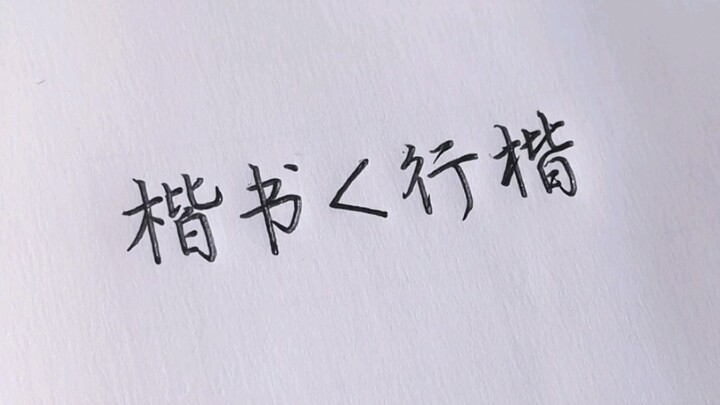 楷书<行楷